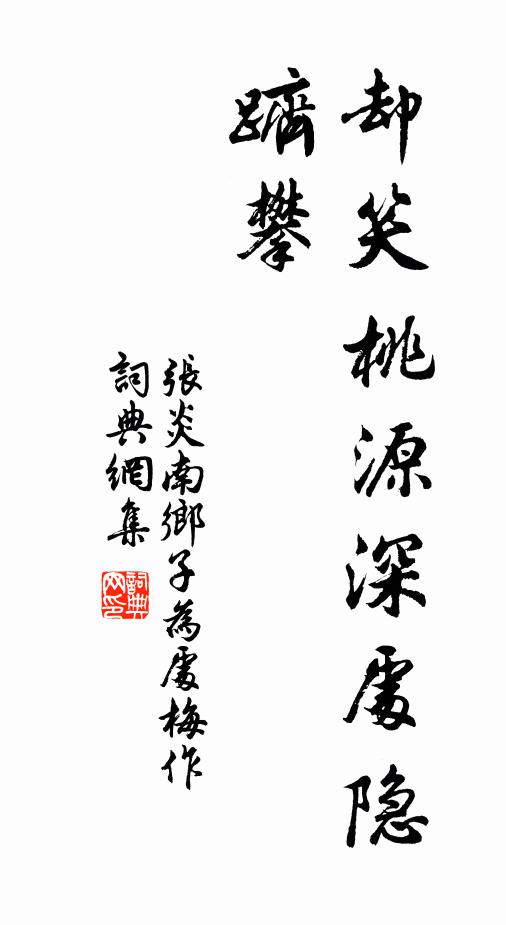 却笑桃源深處隐
躋攀
張炎南鄉子為處梅作
詞典網集
詞典
网印